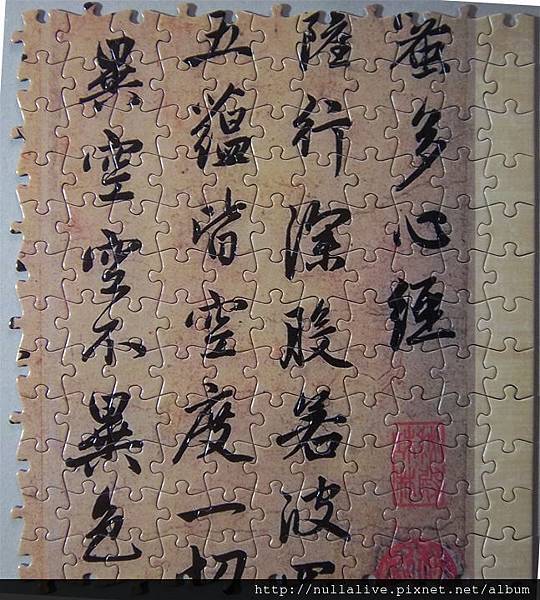 蜜多心經
薩行深般若波
五蘊皆空度一切
異空空不異色
http://nullalive.pixnet.net/album